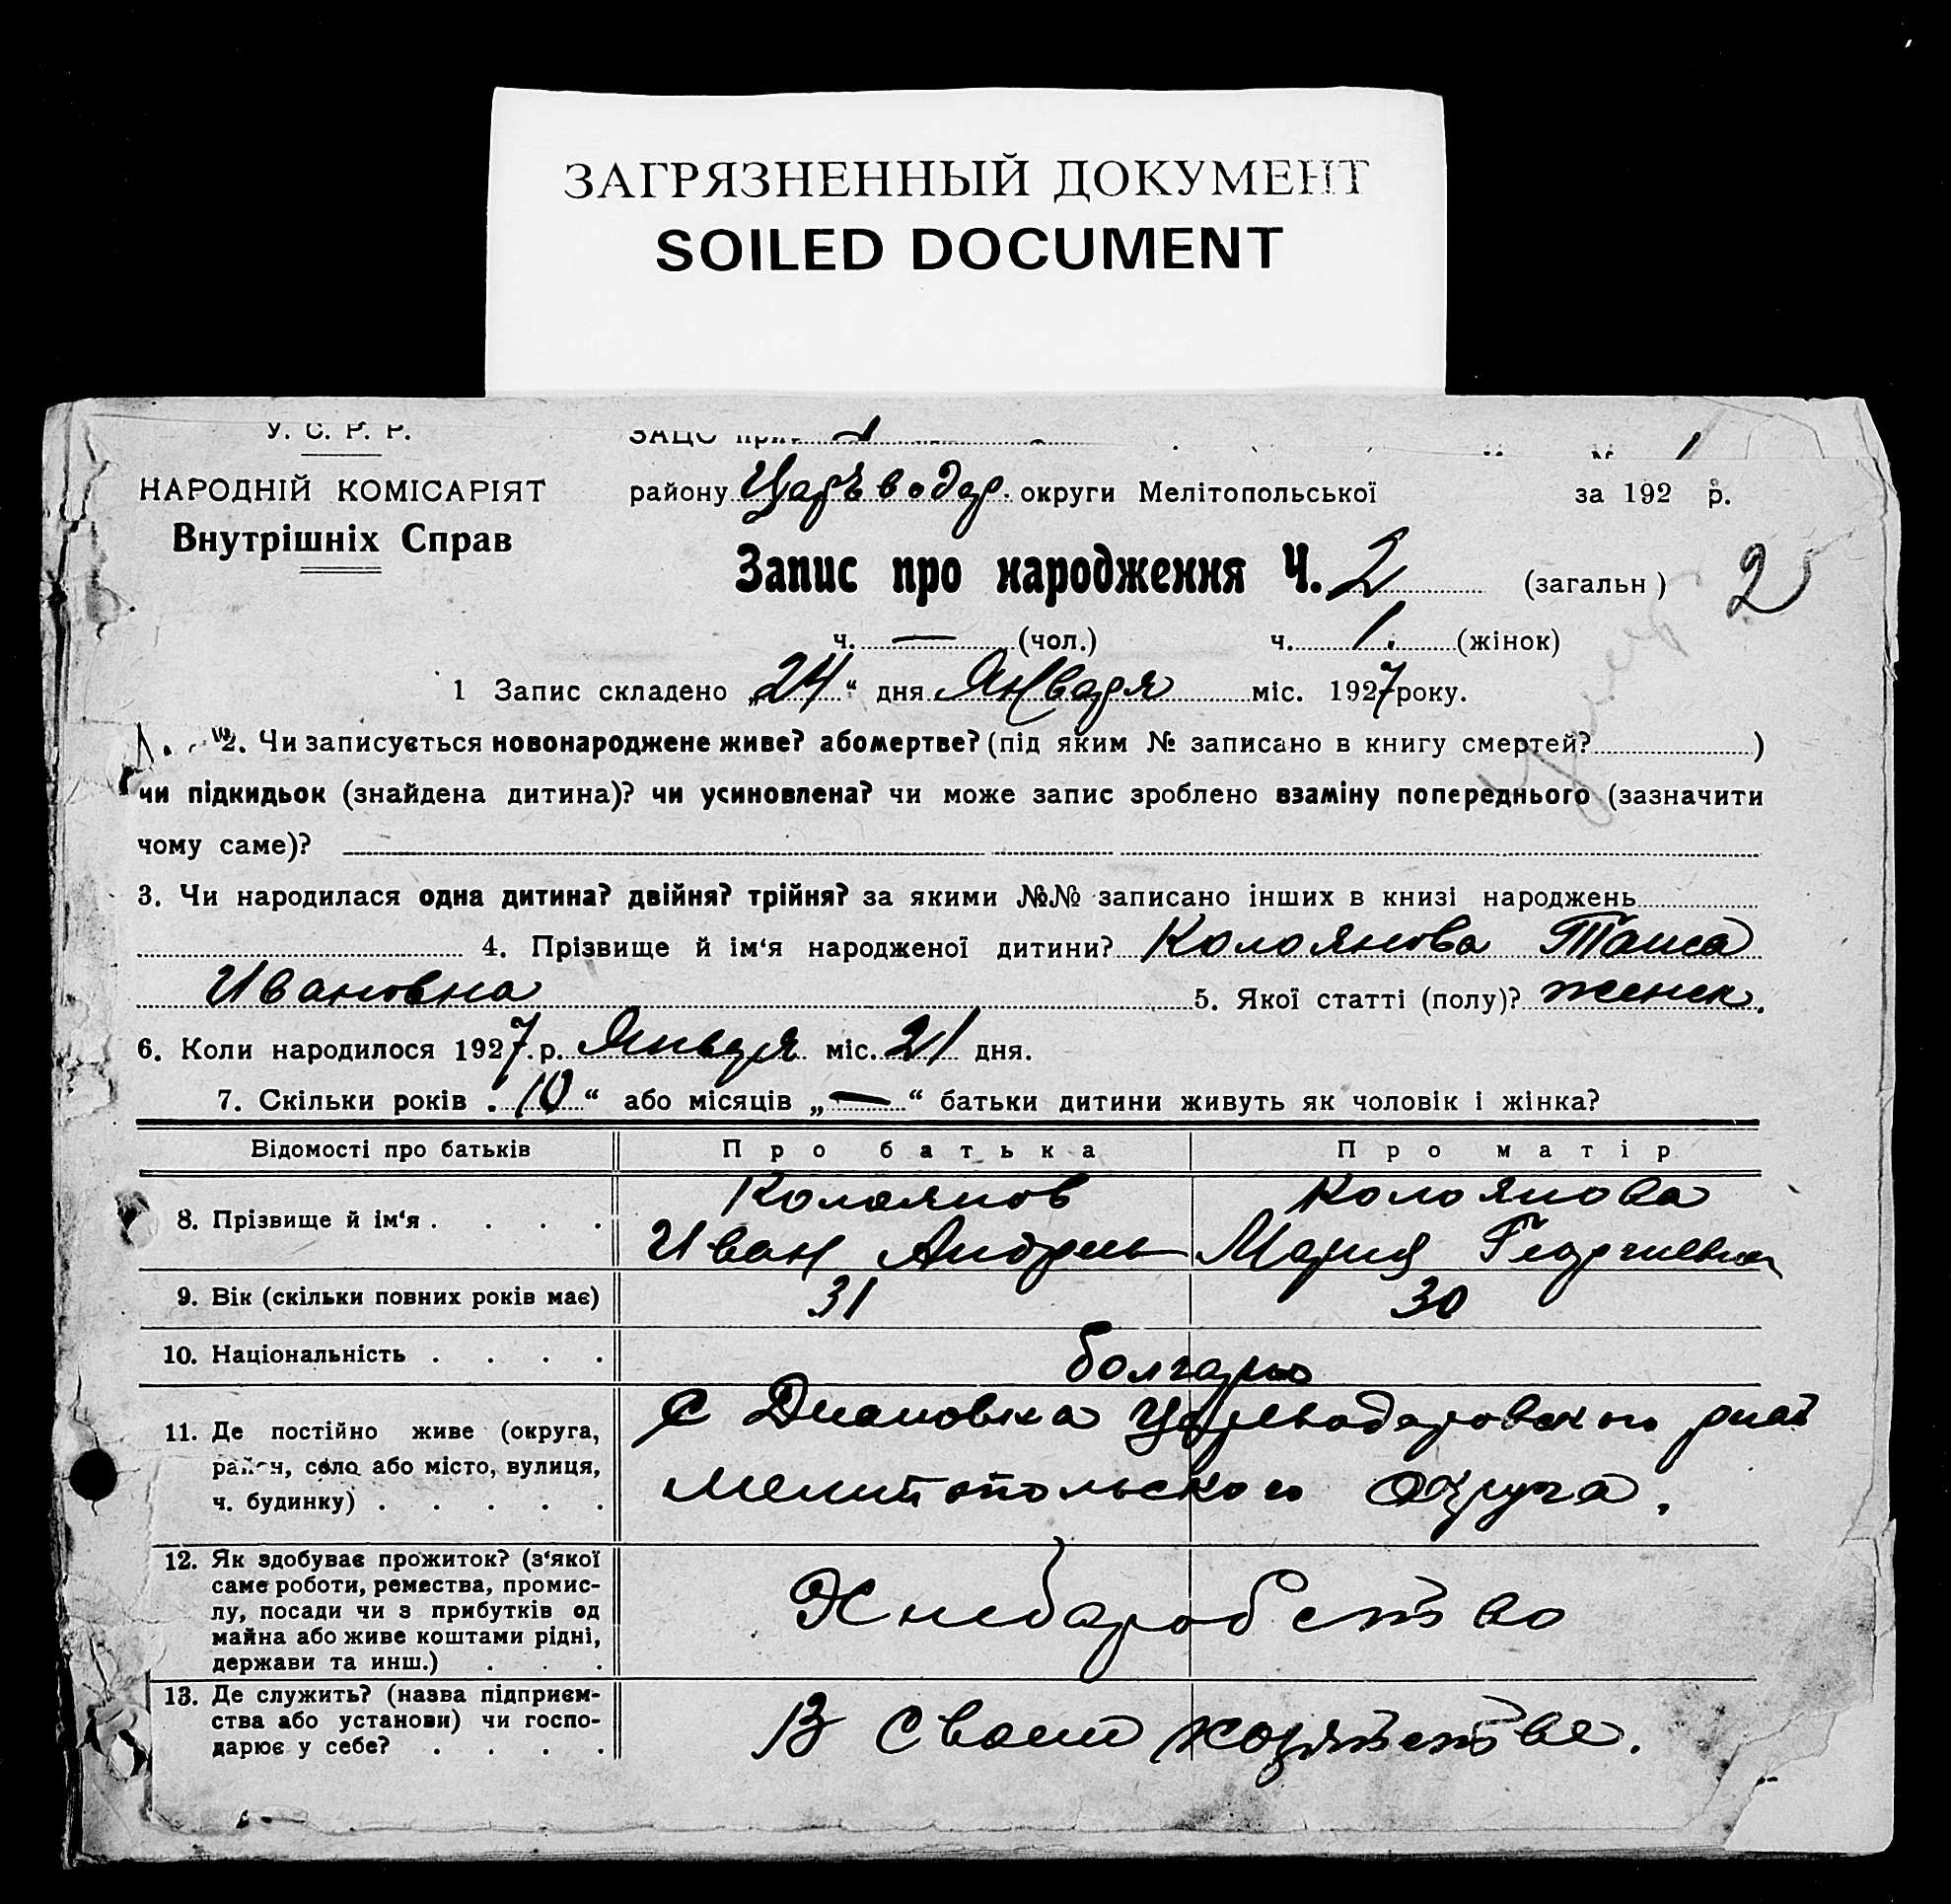 ЗАГРЯЗНЕННЫЙ ДОКУМЕНТ
SOILED DOCUMENT
У. С. Р. Р.
НАРОДНІЙ КОМІСАРІЯТ
Внутрішніх Справ
ЗАЦС при
району Царѣводар. округи Мелітопольської за 192 р.
Запис про народження Ч. 2 (загальн ) 2
ч. — (чол.) ч. 1. (жінок)
1 Запис складено „24“ дня Января міс. 1927 року.
2. Чи записується новонароджене живе? або мертве? (під яким № записано в книгу смертей? )
чи підкидьок (знайдена дитина)? чи усиновлена? чи може запис зроблено взаміну попереднього (зазначити
чому саме)?
3. Чи народилася одна дитина? двійня? трійня? за якими №№ записано інших в книзі народжень
4. Прізвище й ім‘я народженої дитини? Колоянова Таиса
Ивановна 5. Якої статті (полу)? женск.
6. Коли народилося 1927. р. Января міс. 21 дня.
7. Скільки років „10“ або місяців „—“ батьки дитини живуть як чоловік і жінка?
Відомості про батьків Про батька Про матір
8. Прізвище й ім‘я . . . . Колоянов Колоянова
Иван Андреев Мария Георгиевна
9. Вік (скільки повних років має) 31 30
10. Національність . . . . болгары
11. Де постійно живе (округа, С Диановка Царьводаровского
район, село або місто, вулиця,
ч. будинку) . . . . . Мелитопольского округа.
12. Як здобуває прожиток? (з‘якої
саме роботи, ремества, промис-
лу, посади чи з прибутків од Хлебаробство
майна або живе коштами рідні,
держави та инш.) . . .
13. Де служить? (назва підприєм-
ства або установи) чи госпо- В своем хозяйстве.
дарює у себе? . . . .